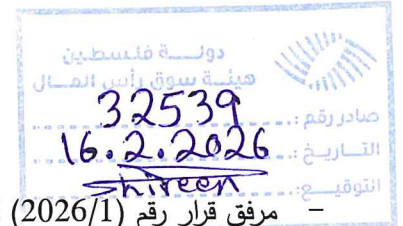 دولـــة فلـســطـين
هيئـــة سوق رأس المـــال
صادر رقم :.... 32539
التـــاريـخ :... 16.2.2026
التوقيـــع :... Shireen
– مرفق قرار رقم (2026/1)